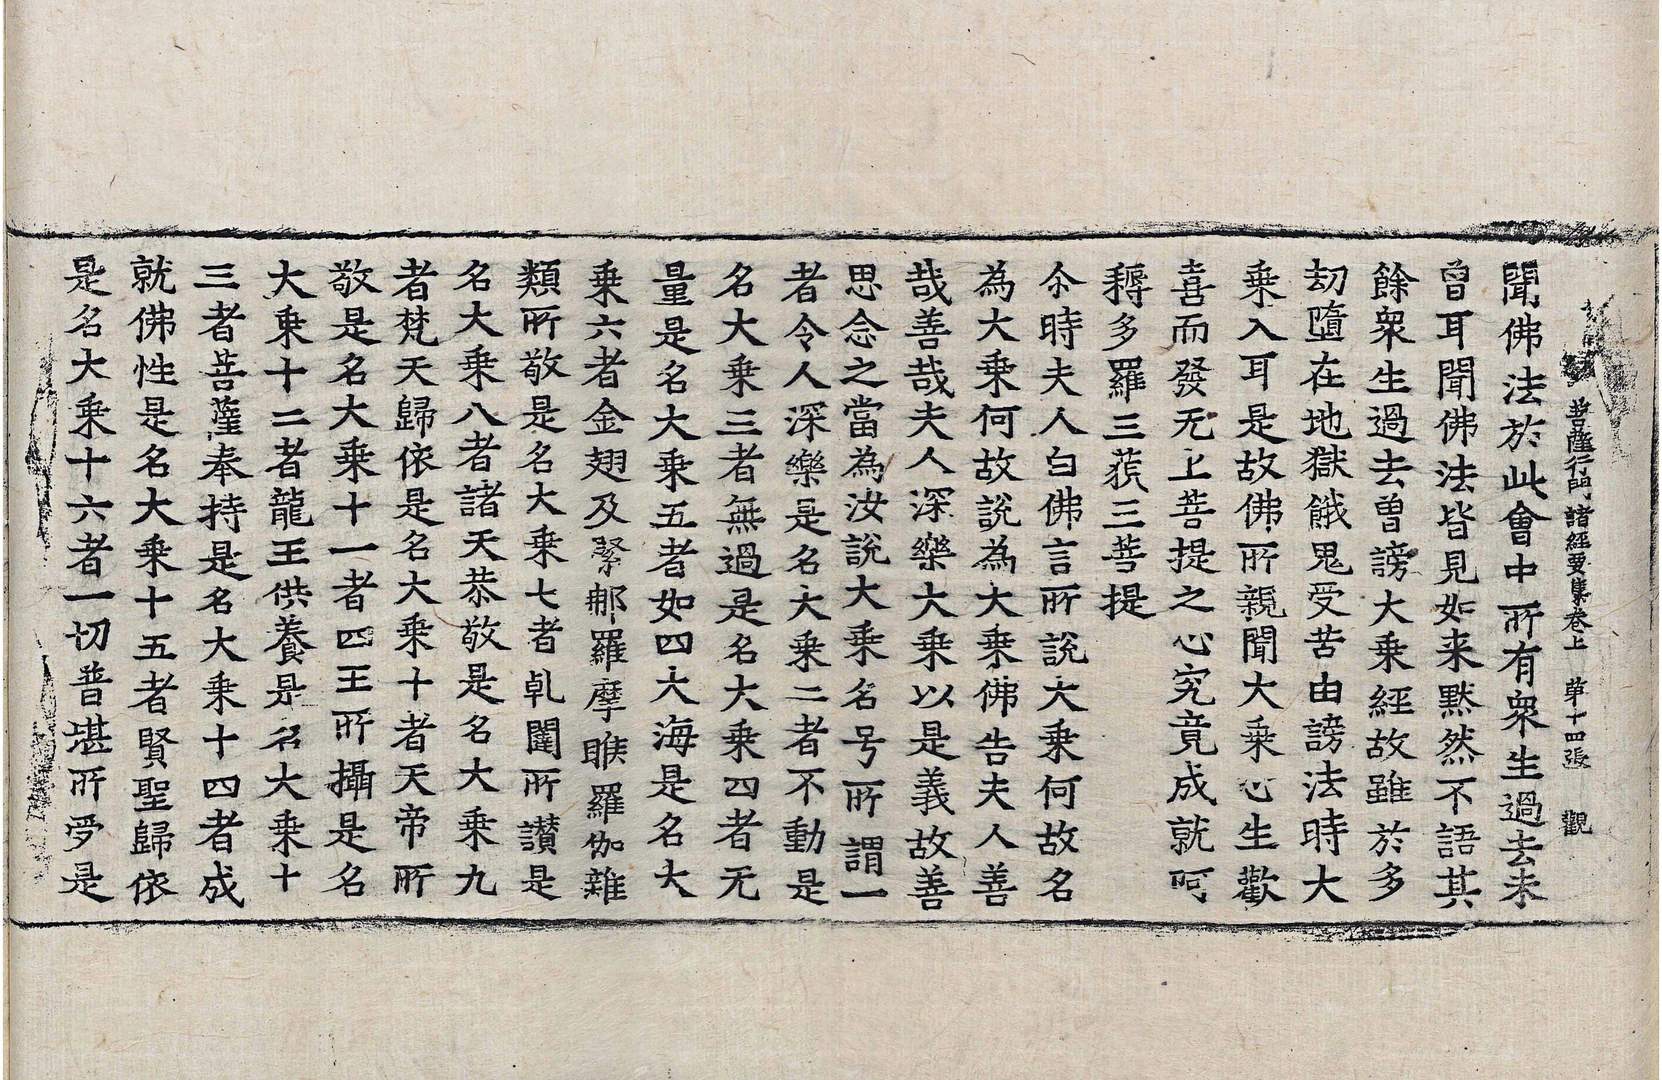 菩薩行門諸經要集卷上 第十四張 觀
聞佛法於此會中所有衆生過去未
曾耳聞佛法皆見如来默然不語其
餘衆生過去曽謗大乗經故雖於多
劫墮在地獄餓鬼受苦由謗法時大
乗入耳是故佛所親聞大乗心生歡
喜而發无上菩提之心究竟成就阿
耨多羅三藐三菩提
尒時夫人白佛言所説大乗何故名
為大乗何故説為大乗佛告夫人善
哉善哉夫人深樂大乗以是義故善
思念之當為汝説大乗名号所謂一
者令人深樂是名大乗二者不動是
名大乗三者無過是名大乗四者无
量是名大乗五者如四大海是名大
乗六者金翅及緊那羅摩睺羅伽雜
類所敬是名大乗七者乹闥所讃是
名大乗八者諸天恭敬是名大乗九
者梵天歸依是名大乗十者天帝所
敬是名大乗十一者四王所攝是名
大乗十二者龍王供養是名大乗十
三者菩薩奉持是名大乗十四者成
就佛性是名大乗十五者賢聖歸依
是名大乗十六者一切普堪所受是